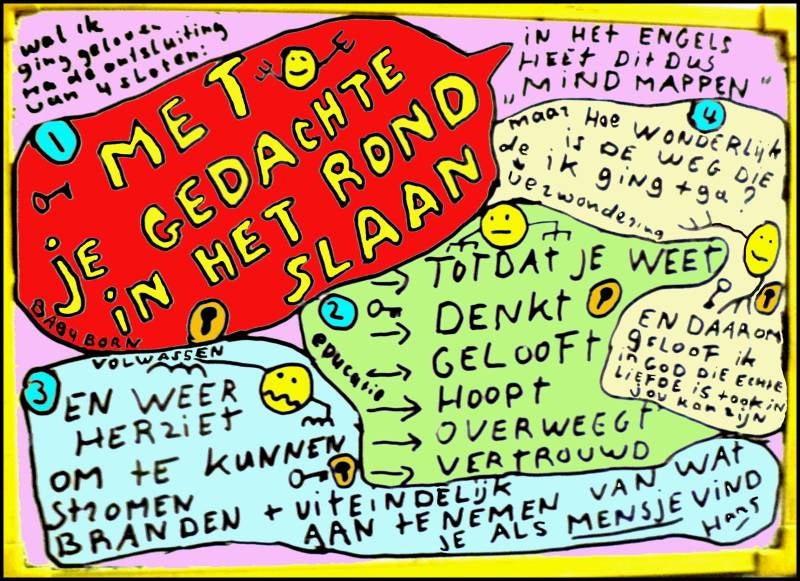 wat ik
ging geloven
na de ontsluiting
van 4 sloten:
1
MET
je GEDACHTE
iN HET ROND
SLAAN
BABY BORN
iN HET ENGELS
HEET DiT DUS
„MiND MAPPEN"
4
maar Hoe WONDERlijk
is DE WEG DIE
de ik ging + ga?
verwondering
EN DAAROM
geloof ik
in GOD DiE ECHTE
LiEFDE is + ook in
jou kan zijn
2
eDucatie
TOTDAT JE WEET
DENKT
GELOOFT
HOOPT
OVERWEEGT
VERTROUWD
3
VOLWASSEN
EN WEER
HERZIET
OM TE KUNNEN
STROMEN
BRANDEN + UITEINDELIJK
AAN TE NEMEN VAN WAT
JE ALS MENSJE VIND
Hans